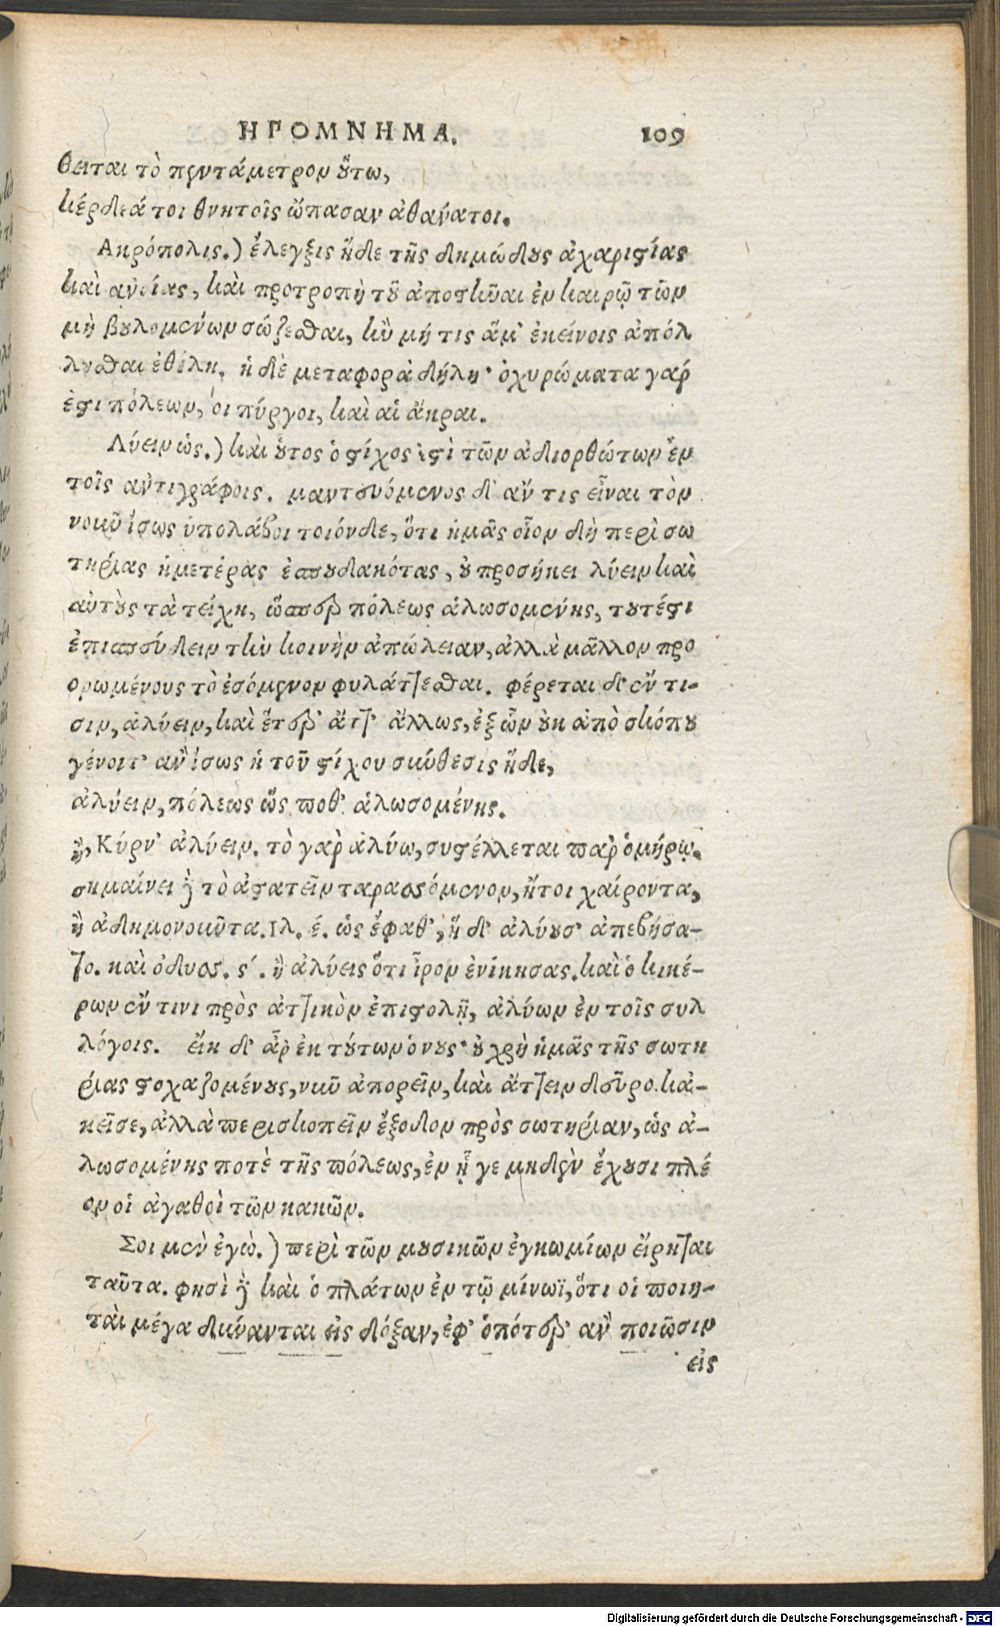 ΗΠΟΜΝΗΜΑ. 109
θειται τὸ πεντάμετρον οὕτω,
κέρδεά τοι θνητοῖς ὤπασαν ἀθανάτοι.
Ακρόπολις.) ἔλεγξις ἥδε τῆς δημώδους ἀχαριστίας
καὶ ἀνοίας, καὶ προτροπὴ τοῦ ἀποστῆναι ἐν καιρῷ τῶν
μὴ βουλομένων σώζεσθαι, ἢν μή τις ἅμ' ἐκείνοις ἀπόλ
λυσθαι ἐθέλῃ. ἡ δὲ μεταφορὰ δήλη· ὀχυρώματα γάρ
ἐστι πόλεων, οἱ πύργοι, καὶ αἱ ἄκραι.
Λύειν ὡς.) καὶ οὗτος ὁ στίχος ἐστὶ τῶν ἀδιορθώτων ἐν
τοῖς ἀντιγράφοις. μαντευόμενος δ' ἄν τις εἶναι τὸν
νοῦν ἴσως ὑπολάβοι τοιόνδε, ὅτι ἡμᾶς οἷον δὴ περὶ σω
τηρίας ἡμετέρας ἐσπουδακότας, οὐ προσήκει λύειν καὶ
αὐτοὺς τὰ τείχη, ὥσπερ πόλεως ἁλωσομένης, τουτέστι
ἐπισπεύδειν τὴν κοινὴν ἀπώλειαν, ἀλλὰ μᾶλλον προ
ορωμένους τὸ ἐσόμενον φυλάττεσθαι. φέρεται δ' ἔν τι-
σιν, ἀλύειν, καὶ ἕτερ' ἄττ' ἄλλως, ἐξ ὧν οὐκ ἀπὸ σκόπου
γένοιτ' ἂν ἴσως ἡ τοῦ στίχου σύνθεσις ἥδε,
ἀλύειν, πόλεως ὥς ποθ' ἁλωσομένης.
ἢ, Κύρν' ἀλύειν. τὸ γὰρ ἀλύω, συστέλλεται παρ' ὁμήρῳ.
σημαίνει δὲ τὸ ἀστατεῖν ταρασσόμενον, ἤτοι χαίροντα,
ἢ ἀδημονοῦντα. Ιλ. έ. ὡς ἔφαθ', ἡ δ' ἀλύουσ' ἀπεβήσα-
το. καὶ ὀδυσσ. ς΄. ἢ ἀλύεις ὅτι ἶρον ἐνίκησας. καὶ ὁ κικέ-
ρων ἔν τινι πρὸς ἀττικὸν ἐπιστολῇ, ἀλύων ἐν τοῖς συλ
λόγοις. εἴη δ' ἂρ ἐκ τούτων ὁ νοῦς· οὐ χρὴ ἡμᾶς τῆς σωτη
ρίας στοχαζομένους, νῦν ἀπορεῖν, καὶ ἄττειν δεῦρο κἀ-
κεῖσε, ἀλλὰ περισκοπεῖν ἔξοδον πρὸς σωτηρίαν, ὡς ἁ-
λωσομένης ποτὲ τῆς πόλεως, ἐν ᾗ γε μηδὲν ἔχουσι πλέ
ον οἱ ἀγαθοὶ τῶν κακῶν.
Σοι μὲν ἐγὼ.) περὶ τῶν μουσικῶν ἐγκωμίων εἴρηται
ταῦτα. φησὶ δὲ καὶ ὁ πλάτων ἐν τῷ μίνωϊ, ὅτι οἱ ποιη-
ταὶ μέγα δύνανται εἰς δόξαν, ἐφ' ὁπότερ' ἂν ποιῶσιν
εἰς
Digitalisierung gefördert durch die Deutsche Forschungsgemeinschaft - DFG